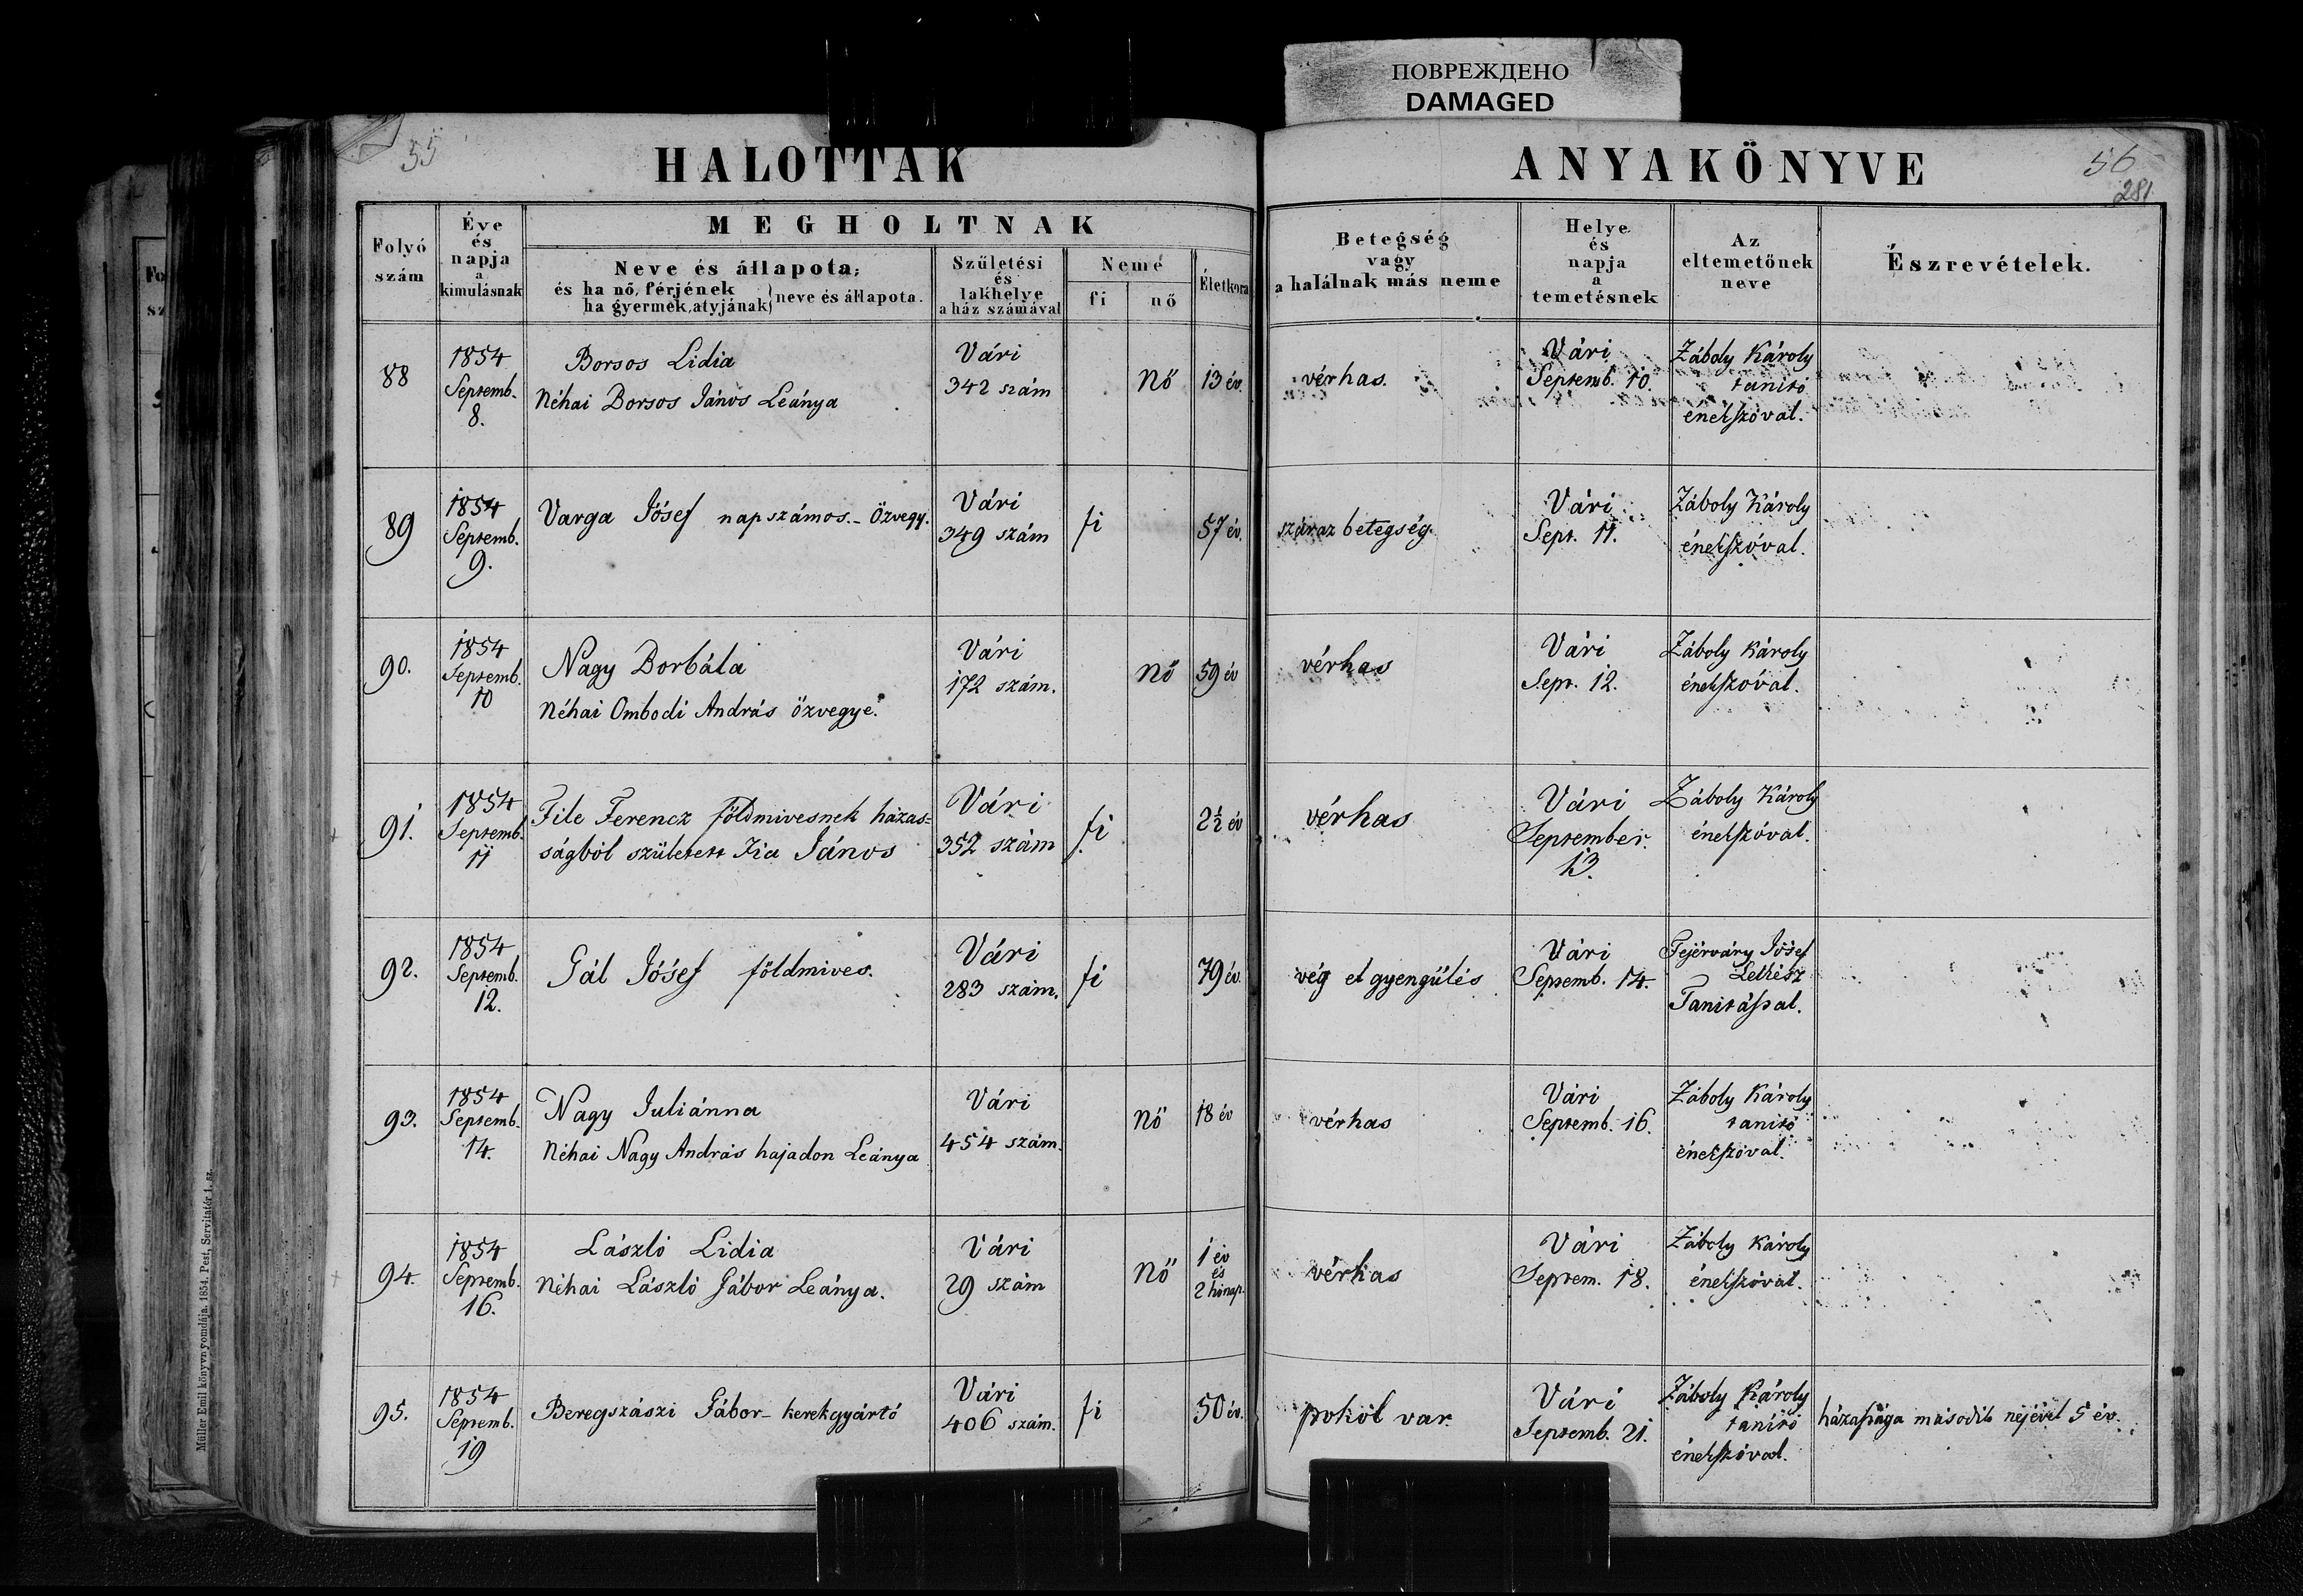 ПОВРЕЖДЕНО
DAMAGED
55
HALOTTAK
ANYAKÖNYVE
56
281
Folyó
szám
Éve
és
napja
a
kimulásnak
MEGHOLTNAK
Neve és állapota;
és ha nő, férjének
ha gyermek, atyjának} neve és állapota.
Születési
és
lakhelye
a ház számával
Neme
fi
nő
Életkora
Betegség
vagy
a halálnak más neme
Helye
és
napja
a
temetésnek
Az
eltemetőnek
neve
Észrevételek.
88
1854
Septemb.
8.
Borsos Lidia
Néhai Borsos János Leánya
Vári
342 szám
Nő
13 év.
vérhas.
Vári
Septemb. 10.
Záboly Károly
tanitó
énekszóval.
89
1854
Septemb.
9.
Varga Jósef napszámos. - Özvegy.
Vári
349 szám
fi
57 év.
száraz betegség.
Vári
Sept. 11.
Záboly Károly
énekszóval.
90.
1854
Septemb.
10
Nagy Borbála
Néhai Ombodi András özvegye.
Vári
172 szám.
Nő
59 év
vérhas
Vári
Sept. 12.
Záboly Károly
énekszóval.
91.
1854
Septemb.
11
File Ferencz földmivesnek házas=
ságból született Fia János
Vári
352 szám
fi
2½ év
vérhas
Vári
September.
13.
Záboly Károly
énekszóval.
92.
1854
Septemb.
12.
Gál Jósef földmives.
Vári
283 szám.
fi
79 év.
vég el gyengülés
Vári
Septemb. 14.
Fejérváry Jósef
Lelkész
Tanitással.
93.
1854
Septemb.
14.
Nagy Juliánna
Néhai Nagy András hajadon Leánya
Vári
454 szám.
Nő
18 év
vérhas
Vári
Septemb. 16.
Záboly Károly
tanitó
énekszóval.
94.
1854
Septemb.
16.
László Lidia
Néhai László Gábor Leánya.
Vári
29 szám
Nő
1 év
és
2 hónap.
vérhas
Vári
Septem. 18.
Záboly Károly
énekszóval.
95.
1854
Septemb.
19
Beregszászi Gábor - kerekgyártó
Vári
406 szám.
fi
50 év.
pokol var.
Vári
Septemb. 21.
Záboly Károly
tanitó
énekszóval.
házassága második nejével 5 év.
Müller Emil könyvnyomdája. 1854. Pest, Servitatér 1. sz.